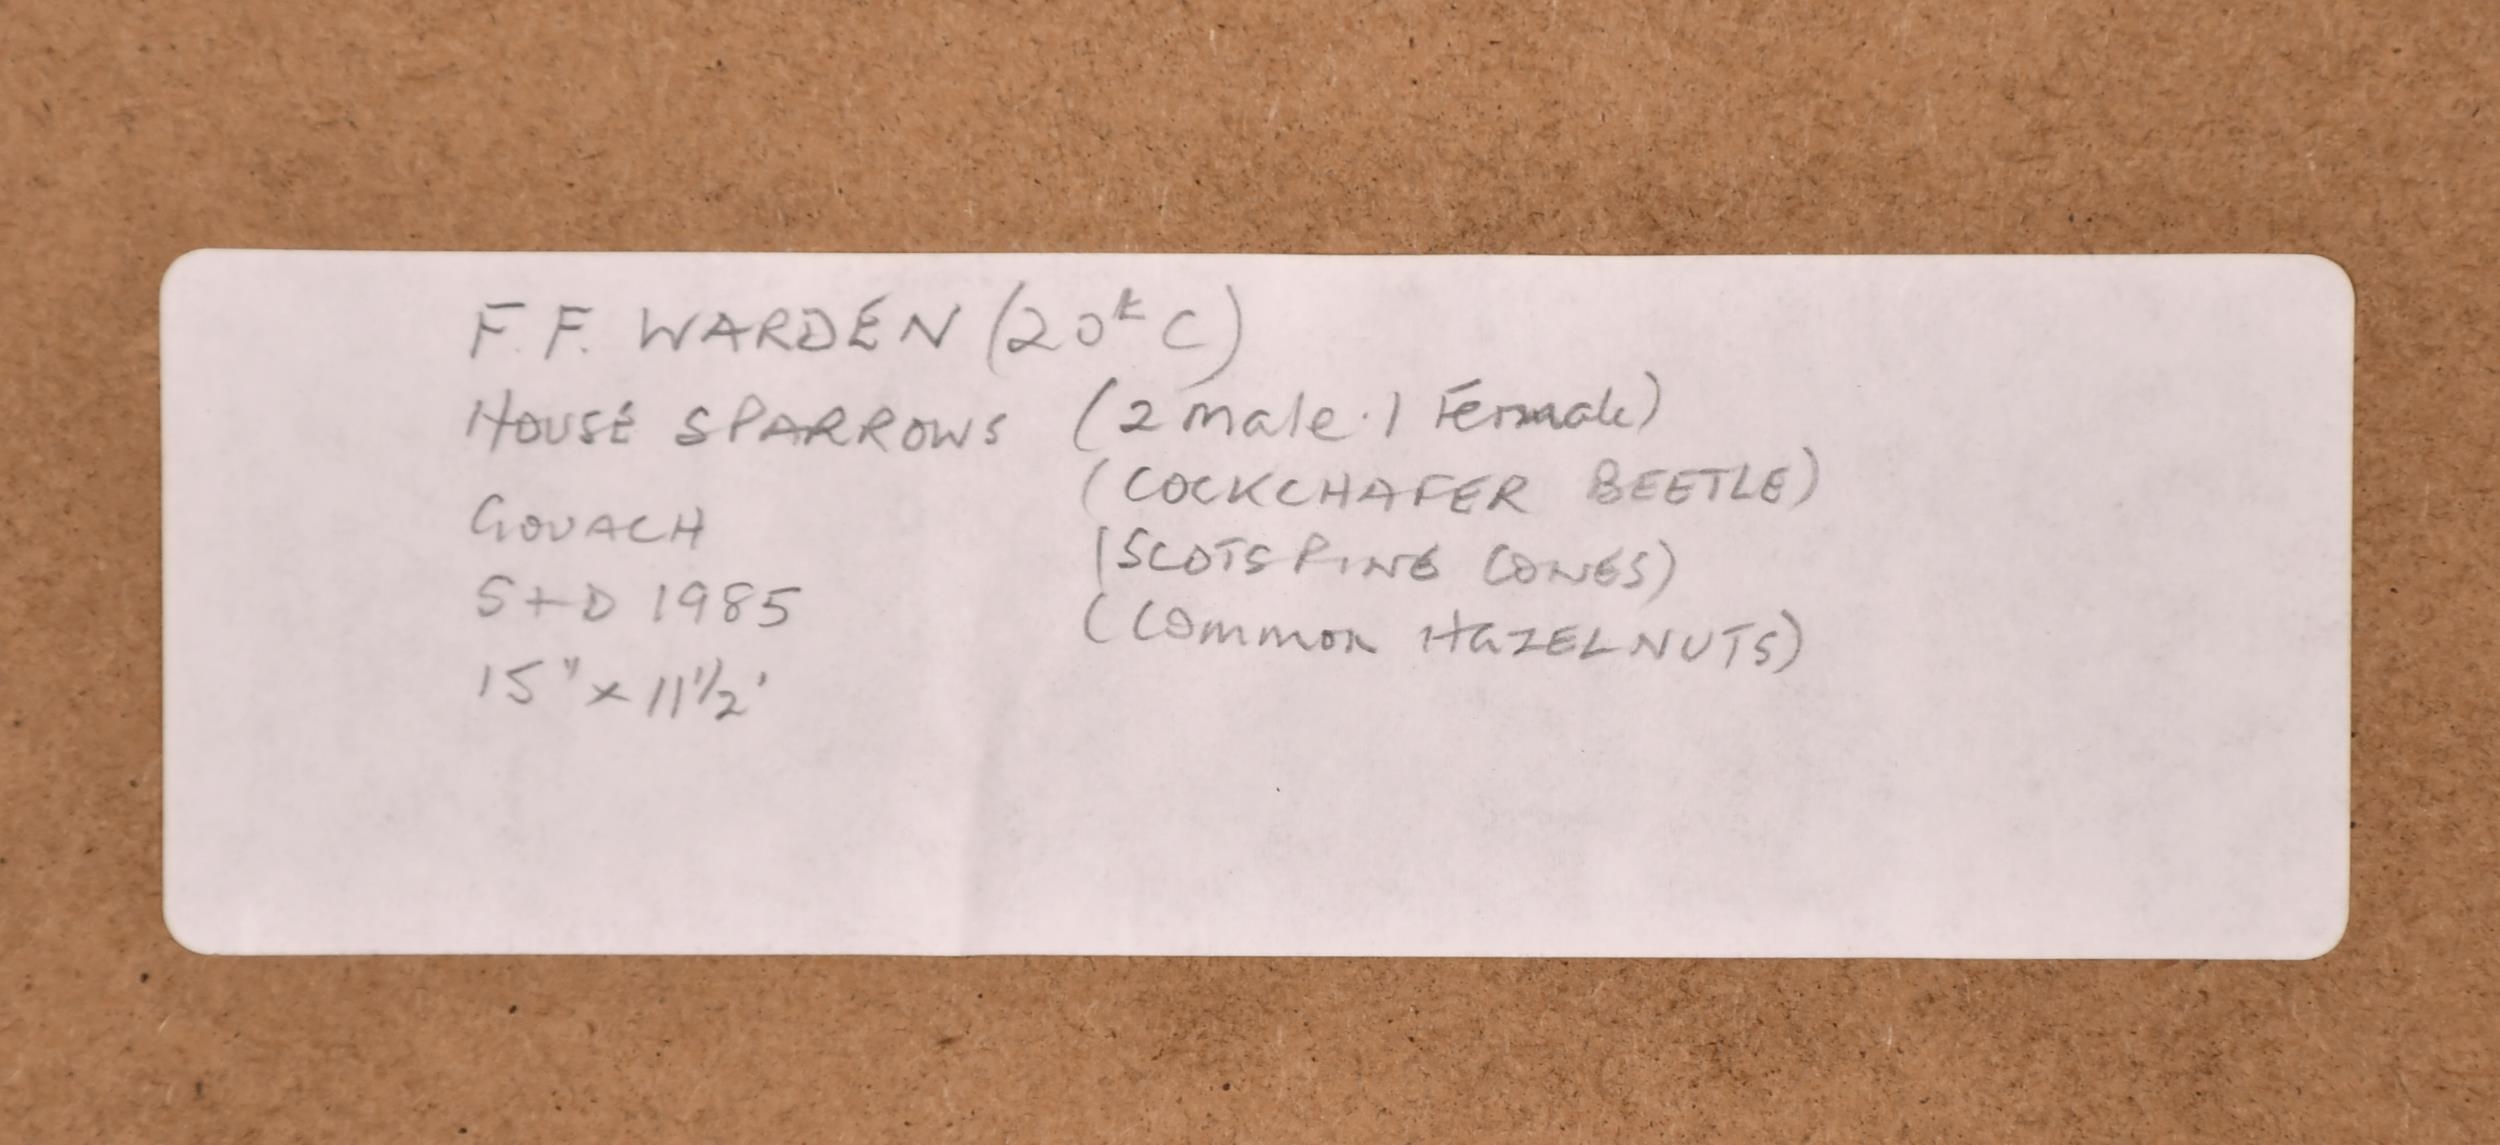 F.F. WARDEN (20th C)
HOUSE SPARROWS (2 male. 1 Female)
(COCKCHAFER BEETLE)
GOUACH
(SCOTS PINE CONES)
S+D 1985
(Common HaZELNUTS)
15" x 11 1/2'